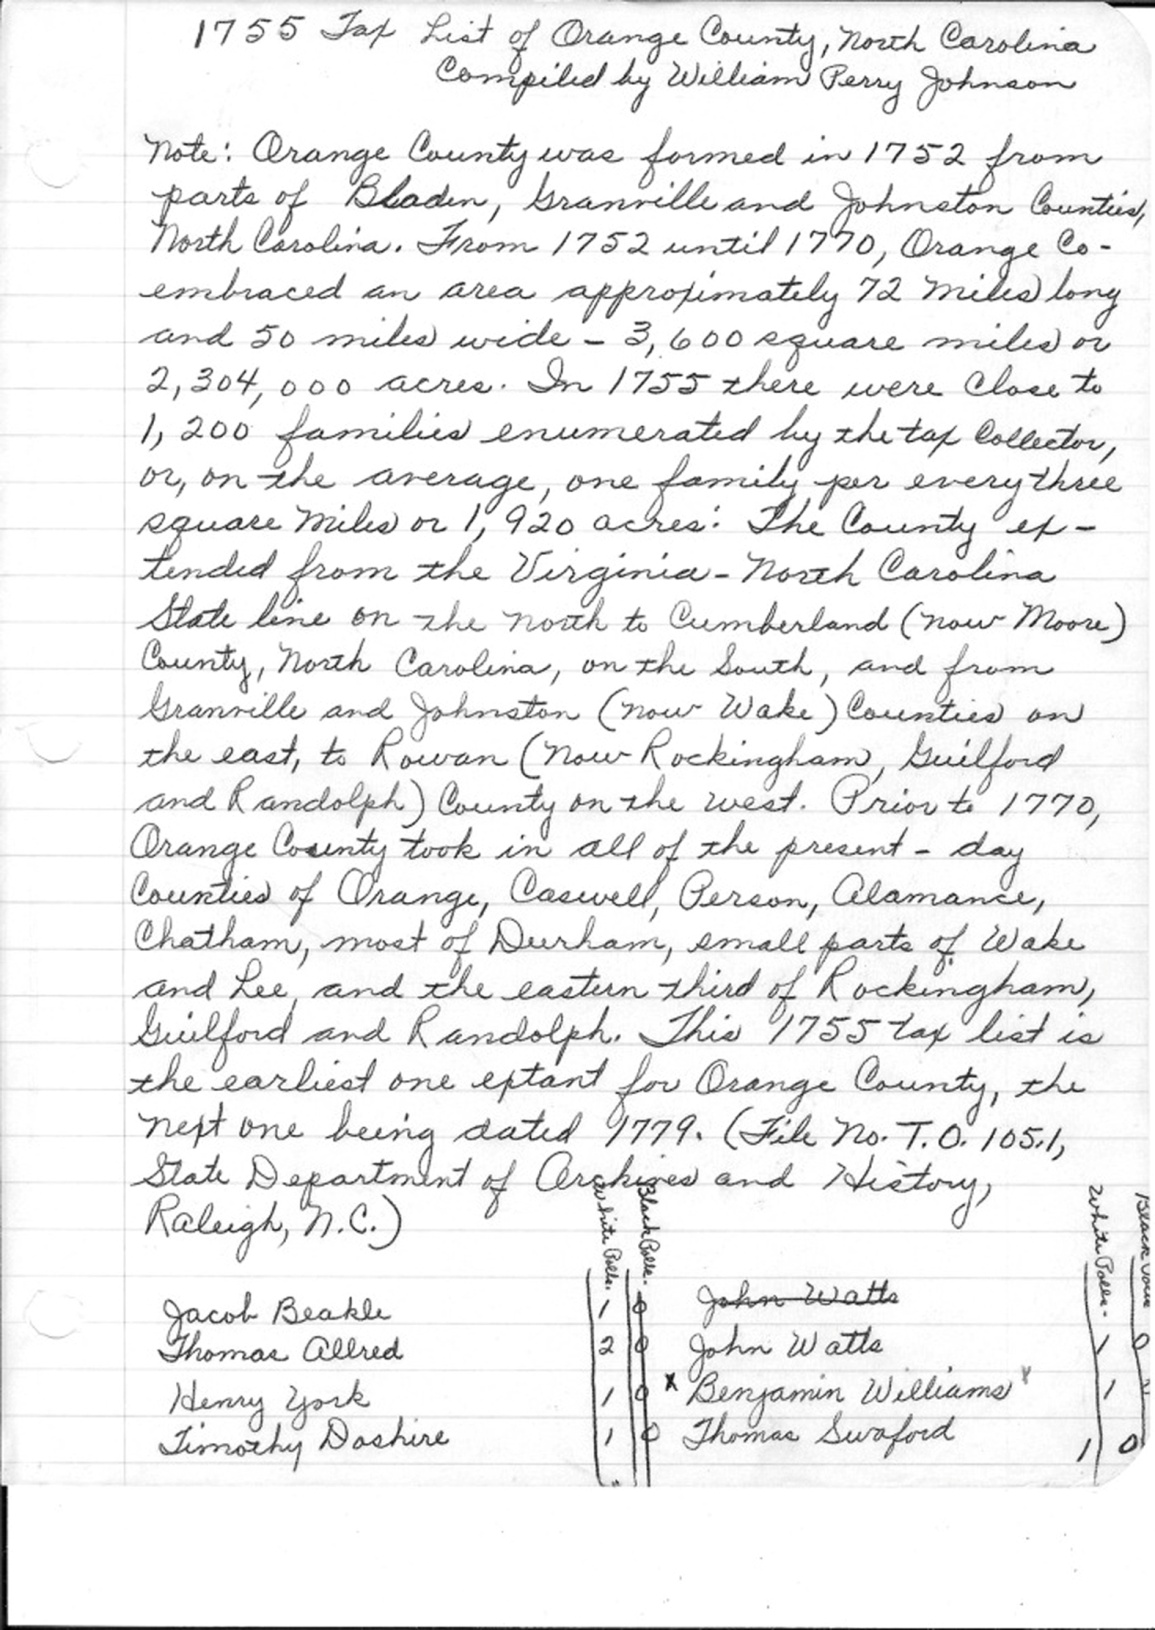 1755 Tax List of Orange County, North Carolina
Compiled by William Perry Johnson
Note: Orange County was formed in 1752 from
parts of Bladen, Granville and Johnston Counties,
North Carolina. From 1752 until 1770, Orange Co-
embraced an area approximately 72 miles long
and 50 miles wide - 3,600 square miles or
2,304,000 acres. In 1755 there were close to
1,200 families enumerated by the tax collector,
or, on the average, one family per every three
square miles or 1,920 acres. The County ex-
tended from the Virginia-North Carolina
State line on the north to Cumberland (now Moore)
County, North Carolina, on the South, and from
Granville and Johnston (now Wake) Counties on
the east, to Rowan (Now Rockingham, Guilford
and Randolph) County on the west. Prior to 1770,
Orange County took in all of the present-day
Counties of Orange, Caswell, Person, Alamance,
Chatham, most of Durham, small parts of Wake
and Lee, and the eastern third of Rockingham,
Guilford and Randolph. This 1755 tax list is
the earliest one extant for Orange County, the
next one being dated 1779. (File No. T.O. 105.1,
State Department of Archives and History,
Raleigh, N.C.)
White Polls. Black Polls. White Polls. Black
Jacob Beakle 1 0 John Watts
Thomas Allred 2 0 John Watts 1 0
Henry York 1 0 x Benjamin Williams x 1
Timothy Doshire 1 0 Thomas Swaford 1 0